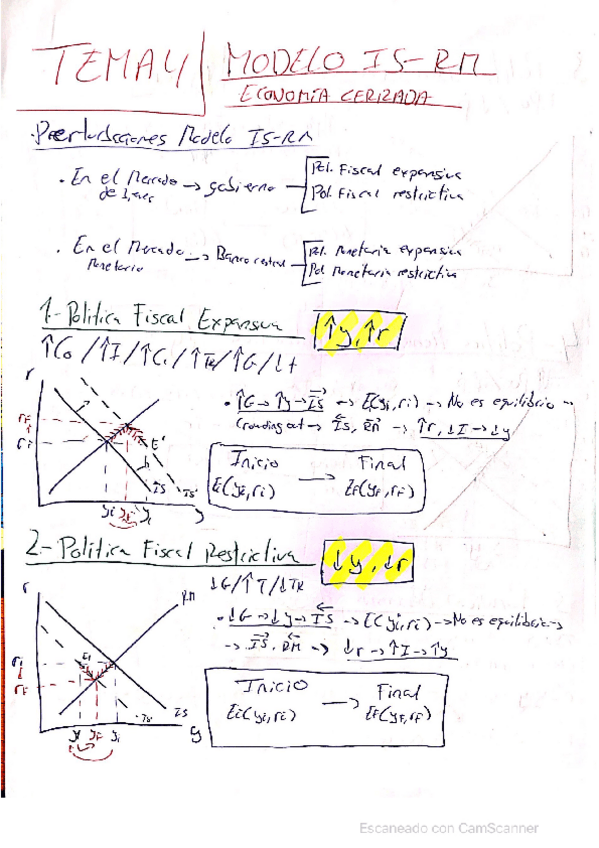 TEMA 4
MODELO IS-RM
ECONOMÍA CERRADA
Perturbaciones Modelo IS-RM
. En el Mercado de Bienes → gobierno → Pol. Fiscal expansiva
Pol. Fiscal restrictiva
. En el Mercado Monetario → Banco central → Pol. Monetaria expansiva
Pol Monetaria restrictiva
1.- Política Fiscal Expansiva ↑y, ↑r
↑C0 / ↑I / ↑C1 / ↑TR / ↑G / ↓t
r
rF
ri
E'
IS
IS'
yi yF y
. ↑G → ↑y → IS → E(yi, ri) → No es equilibrio →
Crowding out → IS, RM → ↑r, ↓I → ↓y
Inicio → Final
Ei(yi, ri) EF(yF, rF)
2.- Política Fiscal Restrictiva ↓y, ↓r
↓G / ↑T / ↓TR
r
RM
ri
rF
IS' IS
yF yi y
. ↓G → ↓y → IS → E(yi, ri) → No es equilibrio →
→ IS, RM → ↓r → ↑I → ↑y
Inicio → Final
Ei(yi, ri) EF(yF, rF)
Escaneado con CamScanner